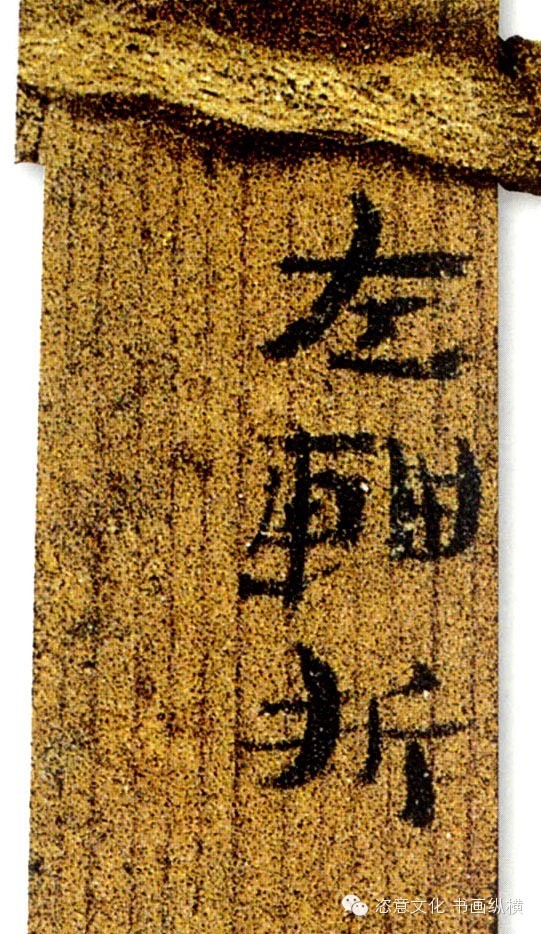 左軸折
恣意文化 书画纵横